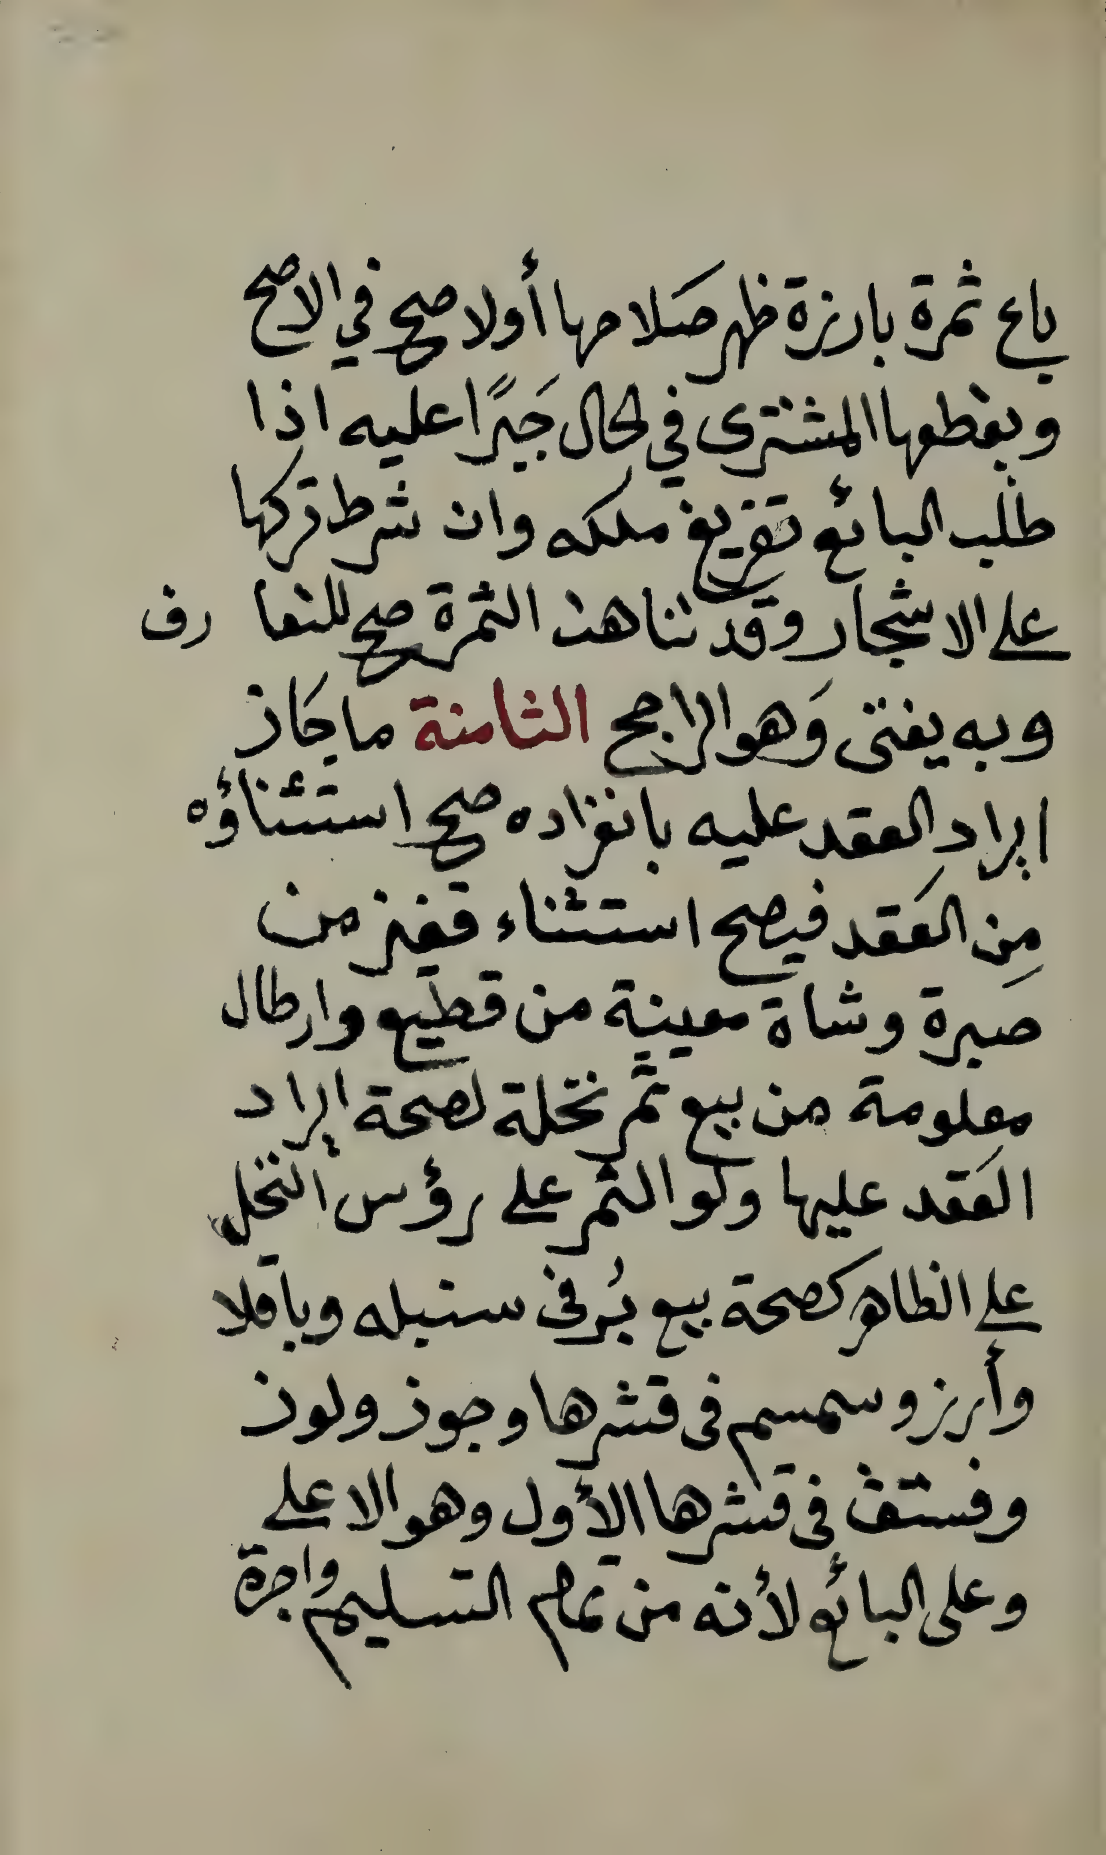 باع ثمرة بارزة ظهر صَلاحها أولا صح في الاصح
ويقطعها المشترى في لحال جَبرًا عليه اذا
طلب البائع تفريغ ملكه وان شرط تركها
على الاشجار وقد تناهت الثمرة صح للتعا رف
وبه يفتى وَهو الراجح الثامنة ما جَاز
ايراد العقد عليه بانفراده صح استثناؤه
مِن العَقد فيصح استثناء قفيز من
صبرة وشاة معينة من قطيع وارطال
معلومة من بيع ثمر نخلة لصحة ايراد
العَقد عليها ولو الثمر على رؤس النخل
على الظاهر كصحة بيع بُر فى سنبله وباقلا
وأرز وسمسم فى قشرها وجوز ولوز
وفستق فى قشرها الأول وهو الاعلى
وعلى البائع لأنه من تمام التسليم واجرة